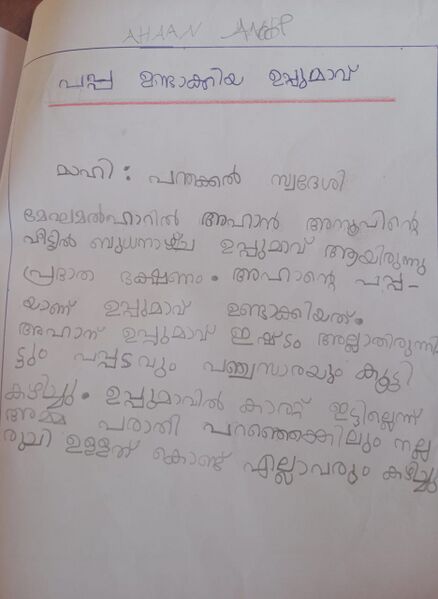 AHAAN ANOOP
പപ്പ ഉണ്ടാക്കിയ ഉപ്പുമാവ്
മാഹി : പന്തക്കൽ സ്വദേശി
മേഘമൽഹാറിൽ അഹാൻ അനൂപിന്റെ
വീട്ടിൽ ബുധനാഴ്ച ഉപ്പുമാവ് ആയിരുന്നു
പ്രഭാത ഭക്ഷണം. അഹാന്റെ പപ്പ-
യാണ് ഉപ്പുമാവ് ഉണ്ടാക്കിയത്.
അഹാന് ഉപ്പുമാവ് ഇഷ്ടം അല്ലാതിരുന്നി
ട്ടും പപ്പടവും പഞ്ചസാരയും കൂട്ടി
കഴിച്ചു. ഉപ്പുമാവിൽ കാരറ്റ് ഇട്ടില്ലെന്ന്
അമ്മ പരാതി പറഞ്ഞെക്കിലും നല്ല
രുചി ഉള്ളത് കൊണ്ട് എല്ലാവരും കഴിച്ചു